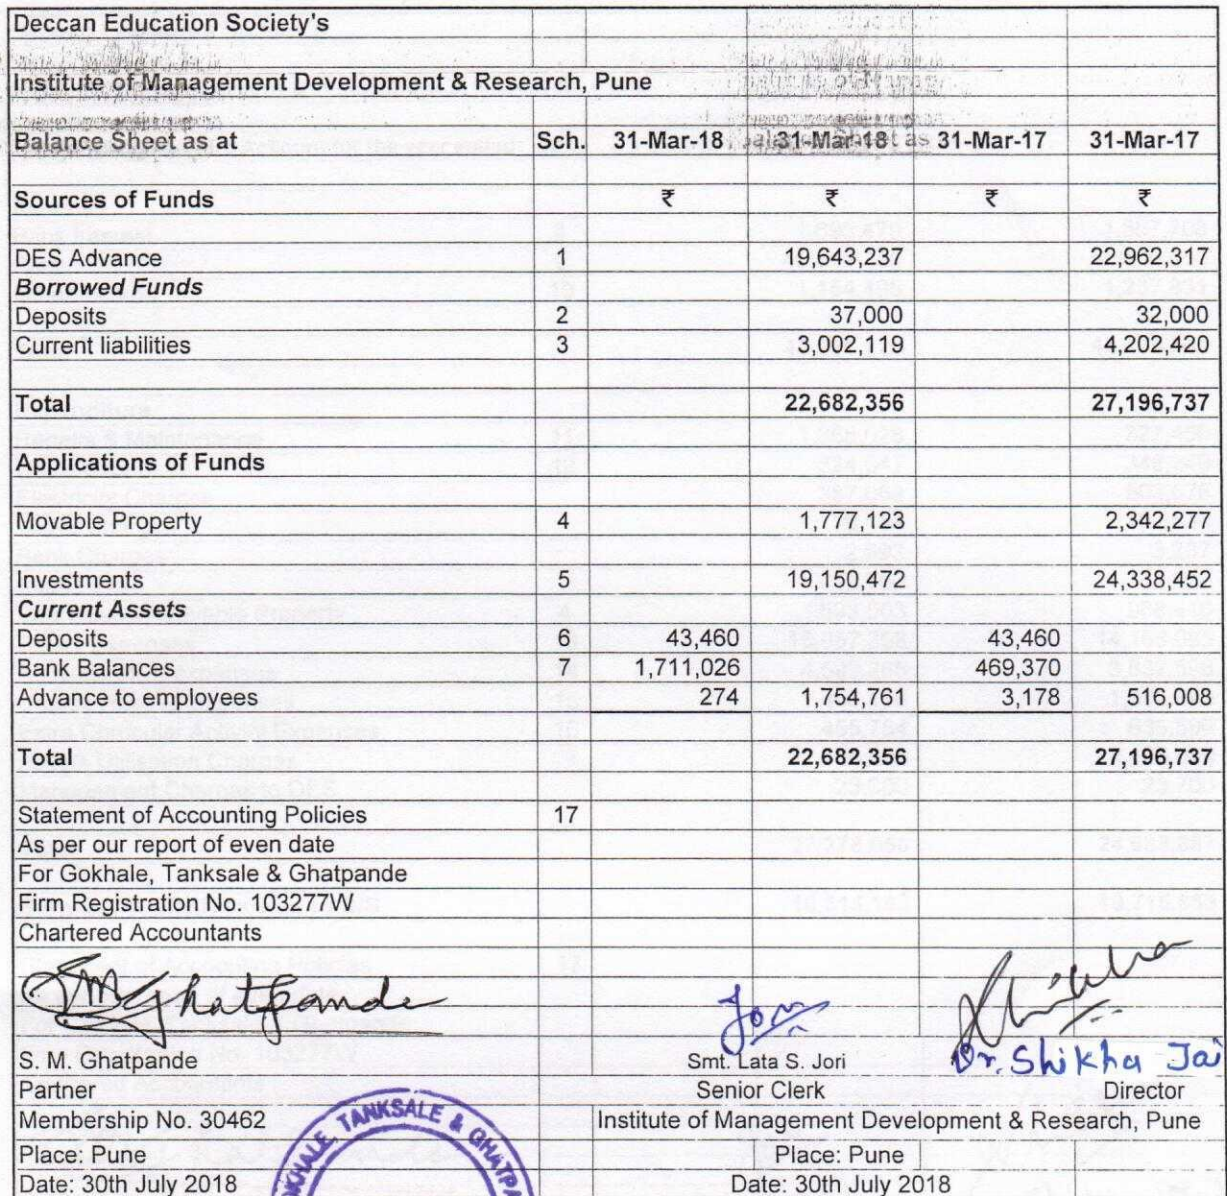 Deccan Education Society's
Institute of Management Development & Research, Pune
Balance Sheet as at Sch. 31-Mar-18 31-Mar-18 31-Mar-17 31-Mar-17
Sources of Funds ₹ ₹ ₹ ₹
DES Advance 1 19,643,237 22,962,317
Borrowed Funds
Deposits 2 37,000 32,000
Current liabilities 3 3,002,119 4,202,420
Total 22,682,356 27,196,737
Applications of Funds
Movable Property 4 1,777,123 2,342,277
Investments 5 19,150,472 24,338,452
Current Assets
Deposits 6 43,460 43,460
Bank Balances 7 1,711,026 469,370
Advance to employees 274 1,754,761 3,178 516,008
Total 22,682,356 27,196,737
Statement of Accounting Policies 17
As per our report of even date
For Gokhale, Tanksale & Ghatpande
Firm Registration No. 103277W
Chartered Accountants
SMGhatpande
Jori
S. M. Ghatpande Smt. Lata S. Jori Dr. Shikha Jai
Partner Senior Clerk Director
Membership No. 30462 Institute of Management Development & Research, Pune
TANKSALE &
Place: Pune Place: Pune
Date: 30th July 2018 Date: 30th July 2018